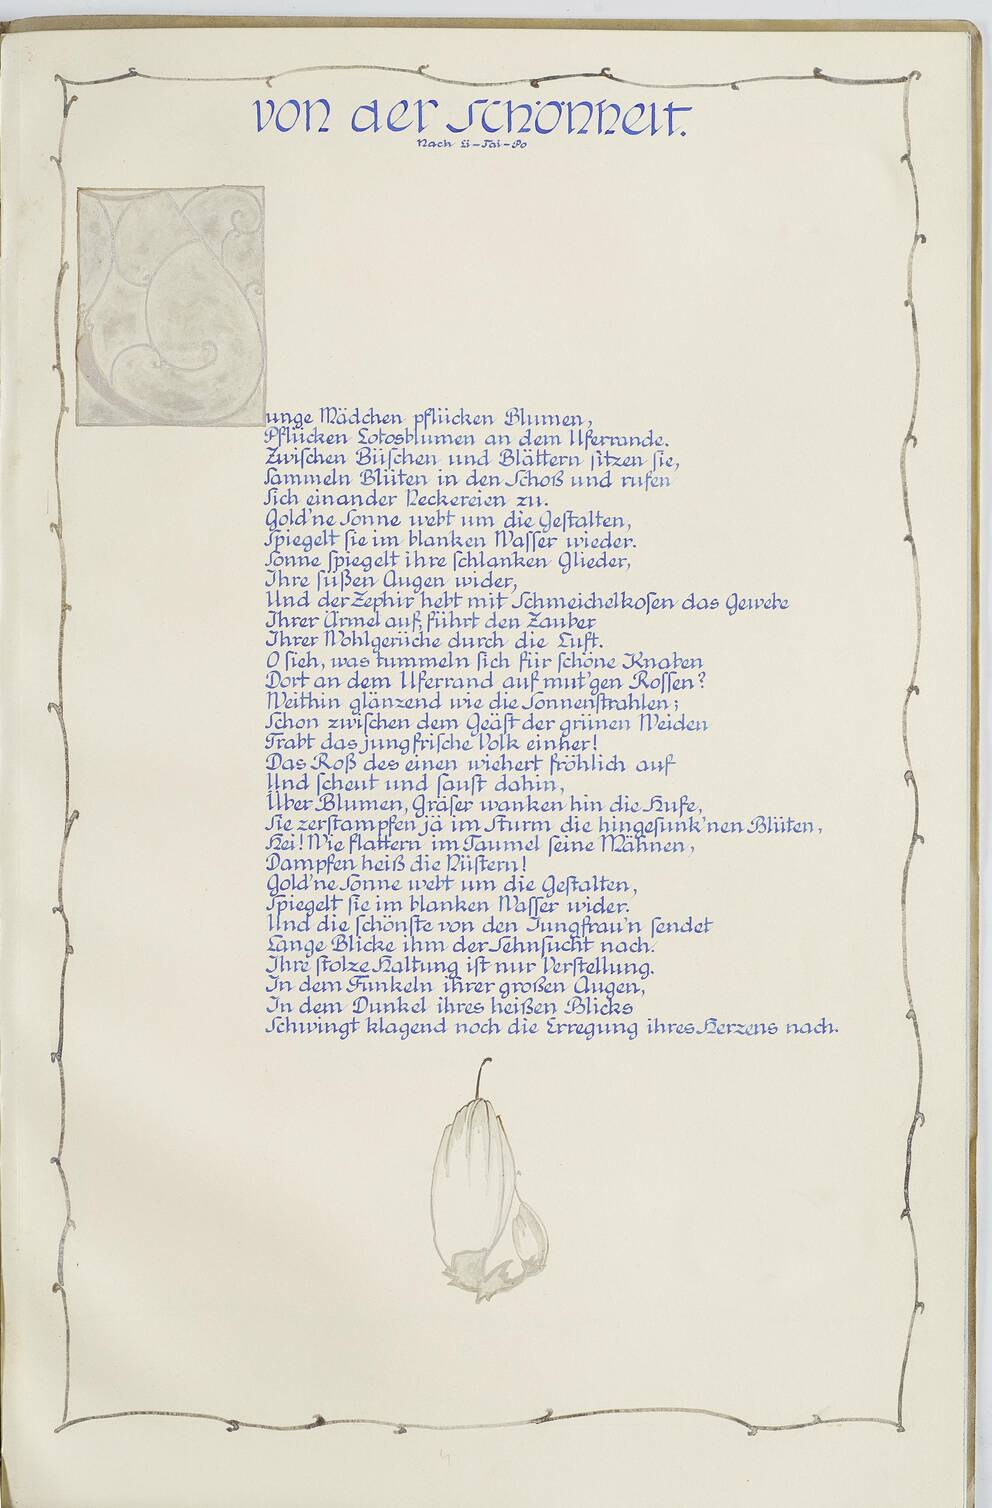 von der Schönheit.
Nach Li-Tai-Po
Junge Mädchen pflücken Blumen,
Pflücken Lotosblumen an dem Uferrande.
Zwischen Büschen und Blättern sitzen sie,
Sammeln Blüten in den Schoß und rufen
Sich einander Neckereien zu.
Gold'ne Sonne webt um die Gestalten,
Spiegelt sie im blanken Wasser wieder.
Sonne spiegelt ihre schlanken Glieder,
Ihre süßen Augen wider,
Und der Zephir hebt mit Schmeichelkosen das Gewebe
Ihrer Ärmel auf, führt den Zauber
Ihrer Wohlgerüche durch die Luft.
O sieh, was tummeln sich für schöne Knaben
Dort an dem Uferrand auf mut'gen Rossen?
Weithin glänzend wie die Sonnenstrahlen;
Schon zwischen dem Geäst der grünen Weiden
Trabt das jungfrische Volk einher!
Das Roß des einen wiehert fröhlich auf
Und scheut und saust dahin,
Über Blumen, Gräser wanken hin die Hufe,
Sie zerstampfen jä im Sturm die hingesunk'nen Blüten,
Hei! Wie flattern im Taumel seine Mähnen,
Dampfen heiß die Nüstern!
Gold'ne Sonne webt um die Gestalten,
Spiegelt sie im blanken Wasser wider.
Und die schönste von den Jungfrau'n sendet
Lange Blicke ihm der Sehnsucht nach.
Ihre stolze Haltung ist nur Verstellung.
In dem Funkeln ihrer großen Augen,
In dem Dunkel ihres heißen Blicks
Schwingt klagend noch die Erregung ihres Herzens nach.